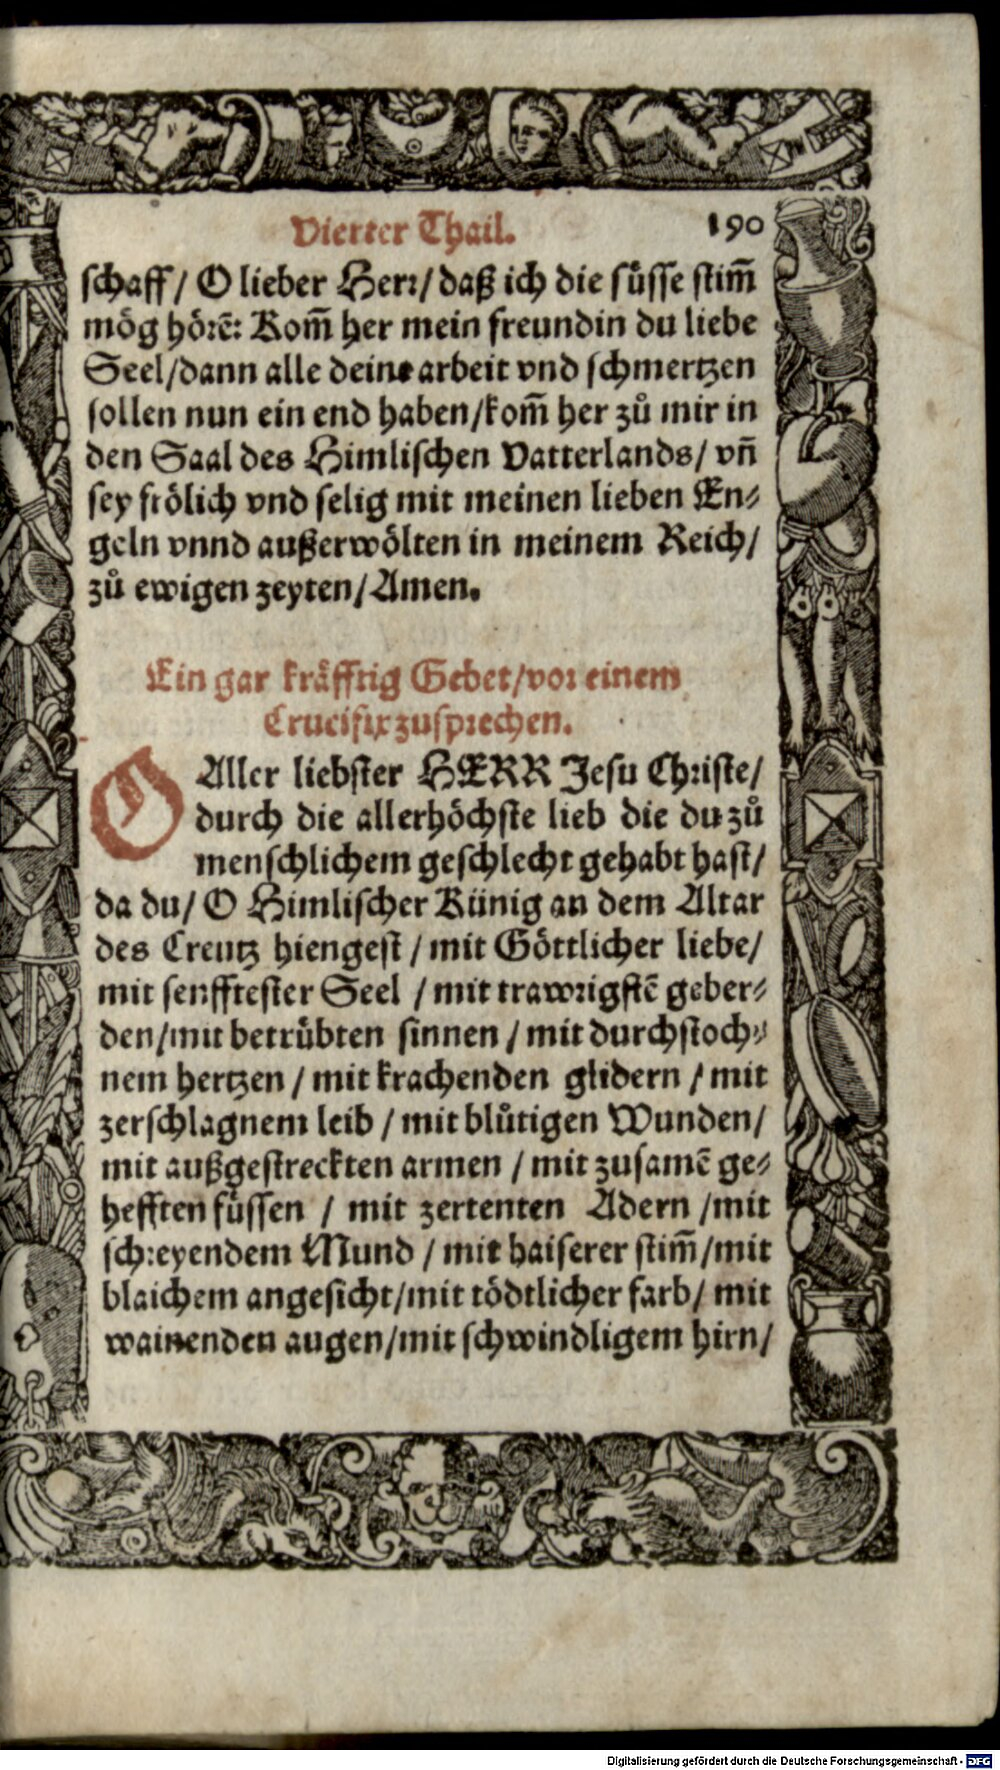 Vierter Thail. 190
schaff/ O lieber Herr/ daß ich die süsse stim̃
mög hörẽ: Kom̃ her mein freundin du liebe
Seel/dann alle deine arbeit vnd schmertzen
sollen nun ein end haben/kom̃ her zů mir in
den Saal des Himlischen Vatterlands/ vñ
sey frölich vnd selig mit meinen lieben En⸗
geln vnnd außerwölten in meinem Reich/
zů ewigen zeyten/Amen.
Ein gar kräfftig Gebet/vor einem
Crucifix zusprechen.
O Aller liebster HERR Jesu Christe/
durch die allerhöchste lieb die du zů
menschlichem geschlecht gehabt hast/
da du/ O Himlischer Künig an dem Altar
des Creutz hiengest / mit Göttlicher liebe/
mit senfftester Seel / mit trawrigstẽ geber⸗
den/mit betrübten sinnen / mit durchstoch⸗
nem hertzen / mit krachenden glidern / mit
zerschlagnem leib / mit blůtigen Wunden/
mit außgestreckten armen / mit zusamẽ ge⸗
hefften füssen / mit zertenten Adern /mit
schreyendem Mund / mit haiserer stim̃/mit
blaichem angesicht/mit tödtlicher farb/ mit
wainenden augen/mit schwindligem hirn/
Digitalisierung gefördert durch die Deutsche Forschungsgemeinschaft - DFG